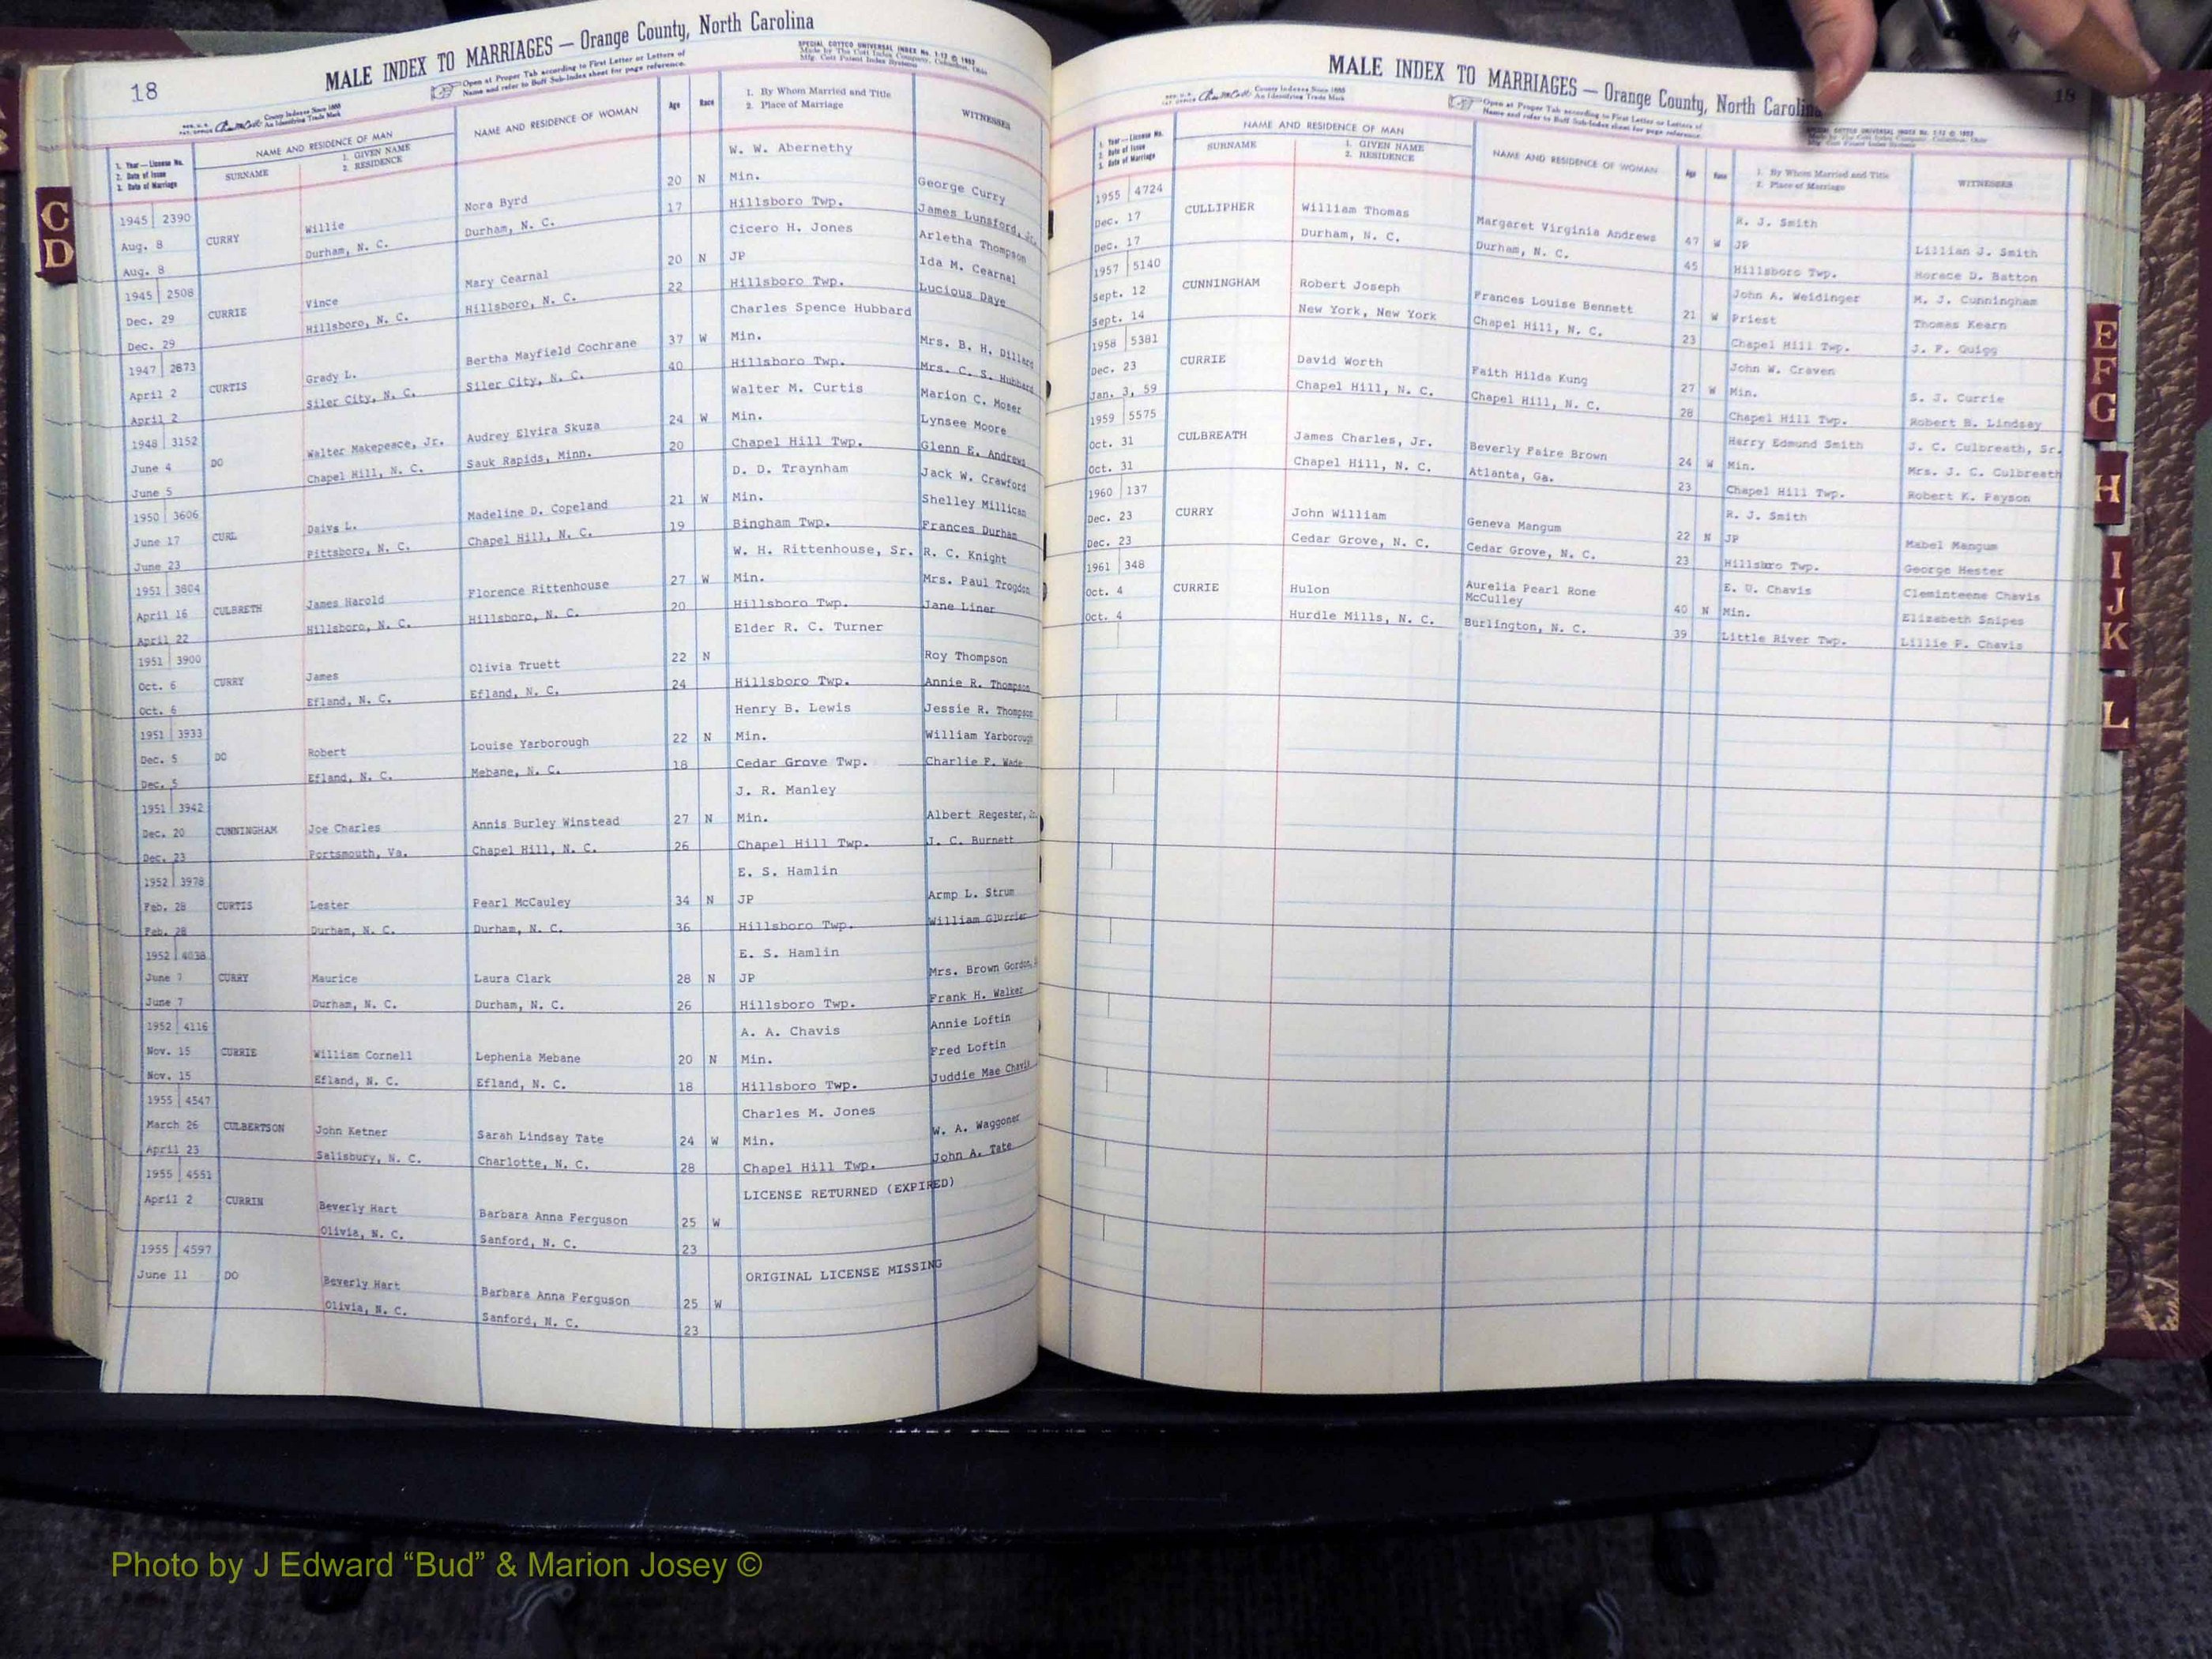 18
MALE INDEX TO MARRIAGES — Orange County, North Carolina
Open at Proper Tab according to First Letter or Letters of
Name and refer to Buff Sub-Index sheet for page reference.
SPECIAL COTTCO UNIVERSAL INDEX No. 1-12 © 1962
Made by The Cott Index Company, Columbus, Ohio
Mfg. Cott Patent Index Systems
County Indexes Since 1888
An Identifying Trade Mark
1. Year — License No.
2. Date of Issue
3. Date of Marriage
NAME AND RESIDENCE OF MAN
SURNAME
1. GIVEN NAME
2. RESIDENCE
NAME AND RESIDENCE OF WOMAN
Age Race
1. By Whom Married and Title
2. Place of Marriage
WITNESSES
1945 2390 W. W. Abernethy
Aug. 8 CURRY Willie Nora Byrd 20 N Min. George Curry
Aug. 8 Durham, N. C. Durham, N. C. 17 Hillsboro Twp. James Lunsford, Jr.
1945 2508 Cicero H. Jones Arletha Thompson
Dec. 29 CURRIE Vince Mary Cearnal 20 N JP Ida M. Cearnal
Dec. 29 Hillsboro, N. C. Hillsboro, N. C. 22 Hillsboro Twp. Lucious Daye
1947 2873 Charles Spence Hubbard
April 2 CURTIS Grady L. Bertha Mayfield Cochrane 37 W Min. Mrs. B. H. Dillard
April 2 Siler City, N. C. Siler City, N. C. 40 Hillsboro Twp. Mrs. C. S. Hubbard
1948 3152 Walter M. Curtis Marion C. Moser
June 4 DO Walter Makepeace, Jr. Audrey Elvira Skuza 24 W Min. Lynsee Moore
June 5 Chapel Hill, N. C. Sauk Rapids, Minn. 20 Chapel Hill Twp. Glenn E. Andrews
1950 3606 D. D. Traynham Jack W. Crawford
June 17 CURL Daivs L. Madeline D. Copeland 21 W Min. Shelley Millican
June 23 Pittsboro, N. C. Chapel Hill, N. C. 19 Bingham Twp. Frances Durham
1951 3804 W. H. Rittenhouse, Sr. R. C. Knight
April 16 CULBRETH James Harold Florence Rittenhouse 27 W Min. Mrs. Paul Trogdon
April 22 Hillsboro, N. C. Hillsboro, N. C. 20 Hillsboro Twp. Jane Liner
1951 3900 Elder R. C. Turner
Oct. 6 CURRY James Olivia Truett 22 N Roy Thompson
Oct. 6 Efland, N. C. Efland, N. C. 24 Hillsboro Twp. Annie R. Thompson
1951 3933 Henry B. Lewis Jessie R. Thompson
Dec. 5 DO Robert Louise Yarborough 22 N Min. William Yarborough
Dec. 5 Efland, N. C. Mebane, N. C. 18 Cedar Grove Twp. Charlie F. Wade
1951 3942 J. R. Manley
Dec. 20 CUNNINGHAM Joe Charles Annis Burley Winstead 27 N Min. Albert Regester, Jr.
Dec. 23 Portsmouth, Va. Chapel Hill, N. C. 26 Chapel Hill Twp. J. C. Burnett
1952 3978 E. S. Hamlin
Feb. 28 CURTIS Lester Pearl McCauley 34 N JP Armp L. Strum
Feb. 28 Durham, N. C. Durham, N. C. 36 Hillsboro Twp. William
1952 4038 E. S. Hamlin
June 7 CURRY Maurice Laura Clark 28 N JP Mrs. Brown Gordon,
June 7 Durham, N. C. Durham, N. C. 26 Hillsboro Twp. Frank H. Walker
1952 4116 A. A. Chavis Annie Loftin
Nov. 15 CURRIE William Cornell Lephenia Mebane 20 N Min. Fred Loftin
Nov. 15 Efland, N. C. Efland, N. C. 18 Hillsboro Twp. Juddie Mae Chavis
1955 4547 Charles M. Jones
March 26 CULBERTSON John Ketner Sarah Lindsay Tate 24 W Min. W. A. Waggoner
April 23 Salisbury, N. C. Charlotte, N. C. 28 Chapel Hill Twp. John A. Tate
1955 4551 LICENSE RETURNED (EXPIRED)
April 2 CURRIN Beverly Hart Barbara Anna Ferguson 25 W
Olivia, N. C. Sanford, N. C. 23
1955 4597 ORIGINAL LICENSE MISSING
June 11 DO Beverly Hart Barbara Anna Ferguson 25 W
Olivia, N. C. Sanford, N. C. 23
C
D
MALE INDEX TO MARRIAGES — Orange County, North Carolina
18
County Indexes Since 1888
An Identifying Trade Mark
Open at Proper Tab according to First Letter or Letters of
Name and refer to Buff Sub-Index sheet for page reference.
SPECIAL COTTCO UNIVERSAL INDEX No. 1-12 © 1962
1. Year — License No.
2. Date of Issue
3. Date of Marriage
NAME AND RESIDENCE OF MAN
SURNAME
1. GIVEN NAME
2. RESIDENCE
NAME AND RESIDENCE OF WOMAN
Age Race
1. By Whom Married and Title
2. Place of Marriage
WITNESSES
1955 4724 R. J. Smith
Dec. 17 CULLIPHER William Thomas Margaret Virginia Andrews 47 W JP Lillian J. Smith
Dec. 17 Durham, N. C. Durham, N. C. 45 Hillsboro Twp. Horace D. Batton
1957 5140 John A. Weidinger M. J. Cunningham
Sept. 12 CUNNINGHAM Robert Joseph Frances Louise Bennett 21 W Priest Thomas Kearn
Sept. 14 New York, New York Chapel Hill, N. C. 23 Chapel Hill Twp. J. F. Quigg
1958 5381 John W. Craven
Dec. 23 CURRIE David Worth Faith Hilda Kung 27 W Min. S. J. Currie
Jan. 3, 59 Chapel Hill, N. C. Chapel Hill, N. C. 28 Chapel Hill Twp. Robert B. Lindsay
1959 5575 Harry Edmund Smith J. C. Culbreath, Sr.
Oct. 31 CULBREATH James Charles, Jr. Beverly Faire Brown 24 W Min. Mrs. J. C. Culbreath
Oct. 31 Chapel Hill, N. C. Atlanta, Ga. 23 Chapel Hill Twp. Robert K. Payson
1960 137 R. J. Smith
Dec. 23 CURRY John William Geneva Mangum 22 N JP Mabel Mangum
Dec. 23 Cedar Grove, N. C. Cedar Grove, N. C. 23 Hillsboro Twp. George Hester
1961 348 E. U. Chavis Cleminteene Chavis
Oct. 4 CURRIE Hulon Aurelia Pearl Rone McCulley 40 N Min. Elizabeth Snipes
Oct. 4 Hurdle Mills, N. C. Burlington, N. C. 39 Little River Twp. Lillie P. Chavis
E
F
G
H
I
J
K
L
Photo by J Edward “Bud” & Marion Josey ©